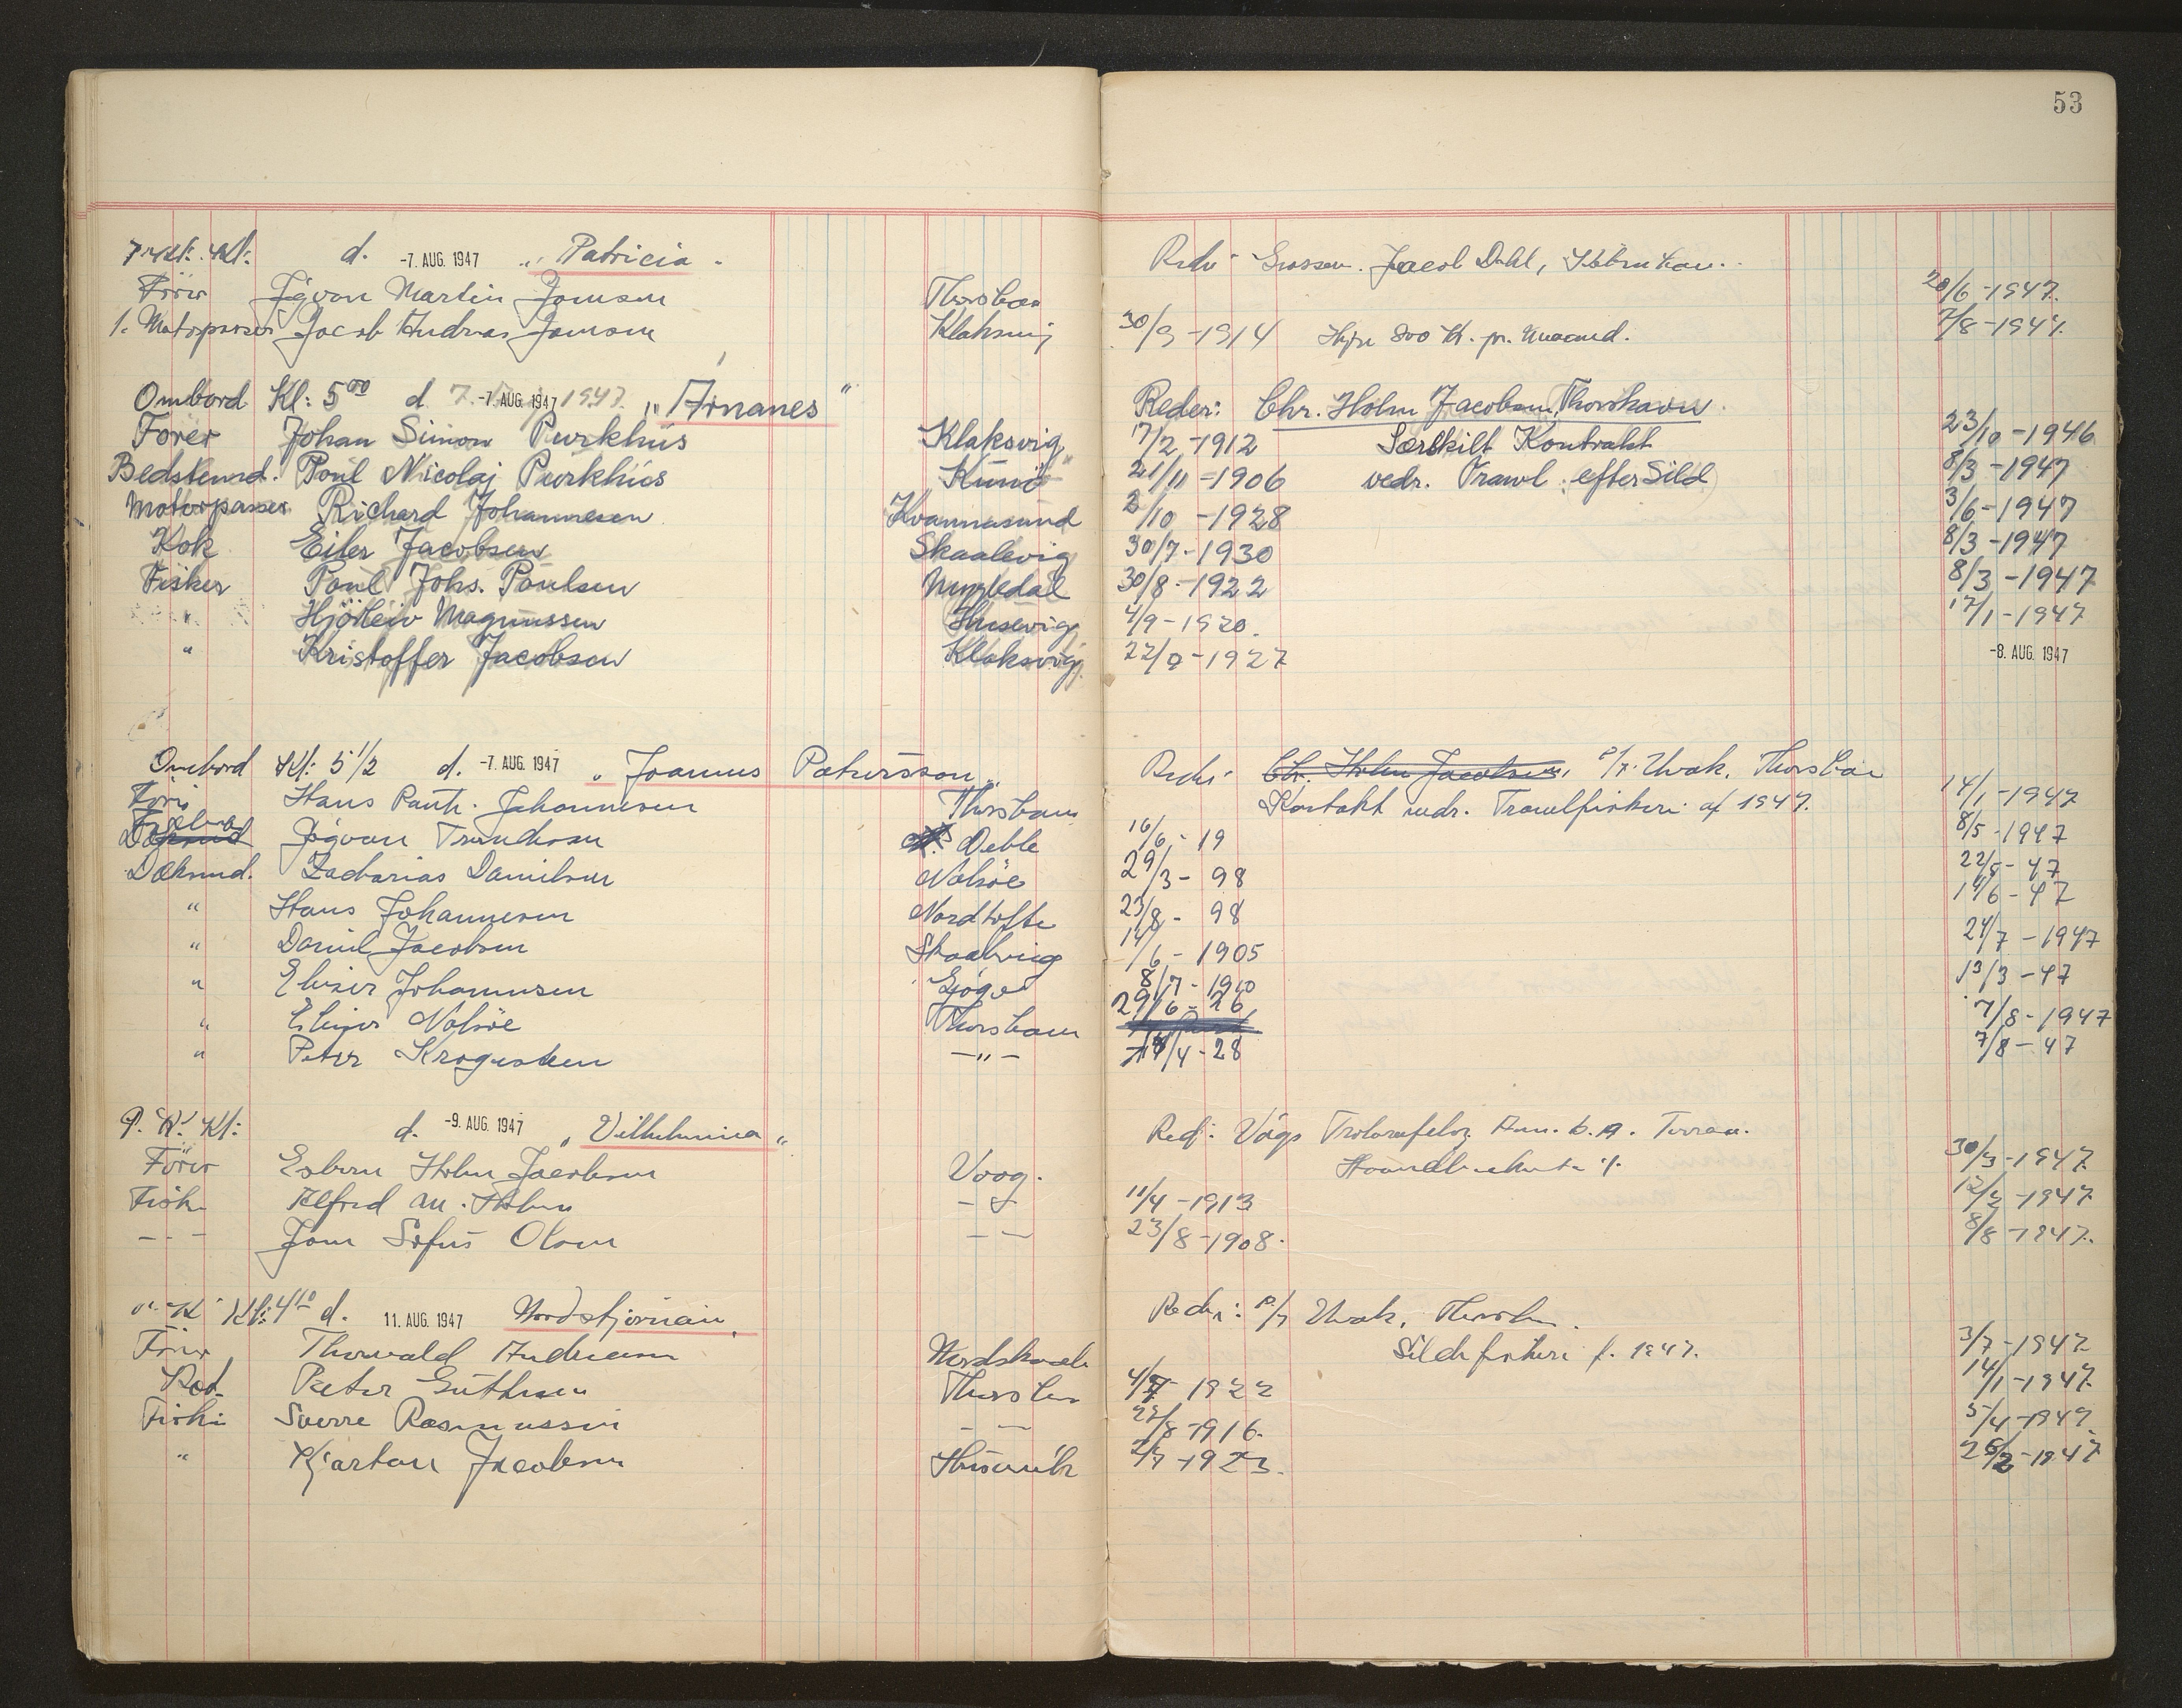 53
d. -7. AUG. 1947 „ Patricia "
Reder
Jacob Dahl,
Fører Jógvan Martin Joensen Thorshavn 20/6-1947.
1. Motorpasser Jacob Andreas Joensen Klaksvig 30/9-1914 Hyre 800 Kr. pr. Maaned. 7/8-1947.
Ombord Kl: 5 00 d. 7. -7. AUG. 1947 1947. „ Arnanes " Reder: Chr. Holm Jacobsen, Thorshavn.
Fører Johan Simon Purkhús Klaksvig 17/2-1912 Særskilt Kontrakt 23/10-1946
Bedstemd. Poul Nicolaj Purkhús Kunö 21/11-1906 vedr. Trawl efter Sild 8/3-1947
Motorpasser Richard Johannesen Kvannasund 2/10-1928 3/6-1947
Kok Eiler Jacobsen Skaalevig 30/7-1930 8/3-1947
Fisker Poul Johs. Poulsen Mygledal 30/8-1922 8/3-1947
" Hjörleiv Magnussen Husevig 4/9-1920. 17/1-1947
" Kristoffer Jacobsen Klaksvig 22/9-1927 -8. AUG. 1947
Ombord Kl: 5 1/2 d. -7. AUG. 1947 „ Joannes Patursson " Reder Chr. Holm Jacobsen, P/f. Hvak, Thorshavn
Fører Hans Pauli Johannesen Thorshavn Kontrakt vedr. Trawlfiskeri af 1947. 14/1-1947
Jógvan Trondesen 16/6-19 8/5-1947
Dæksmd. Zacharias Danielsen Nolsöe 29/3-98 22/5-47
" Hans Johannesen Nordtofte 23/8-98 14/6-47
" Daniel Jacobsen Skaalevig 14/6-1905 24/7-1947
" Elieser Johannesen Gjógv 8/7-1910 13/3-47
" Nolsöe Thorshavn 29/6-26 7/8-1947
" Peter Krogusteen -"- /4-28 7/8-47
P. K. Kl: d. -9. AUG. 1947 „ Vilhelmina "
Fører Esbern Holm Jacobsen Vaag. 30/3-1947
Fisker Alfred M. Holm 11/4-1913 12/2-1947
--- Joen Sofus Olsen -- 23/8-1908. 8/8-1947.
Kl: 4 10 d. 11. AUG. 1947 Nordstjørnan. Reder: P/f Hvak, Thorshavn.
Fører Thorvald Andreasen Nordskaale Sildefiskeri f. 1947. 3/7-1947
Peter Guttesen Thorshavn 1922 14/1-1947
Fisker Sverre Rasmussen -- 1916. 5/4-1947
" Kjartan Jacobsen 1923. 26/2-1947